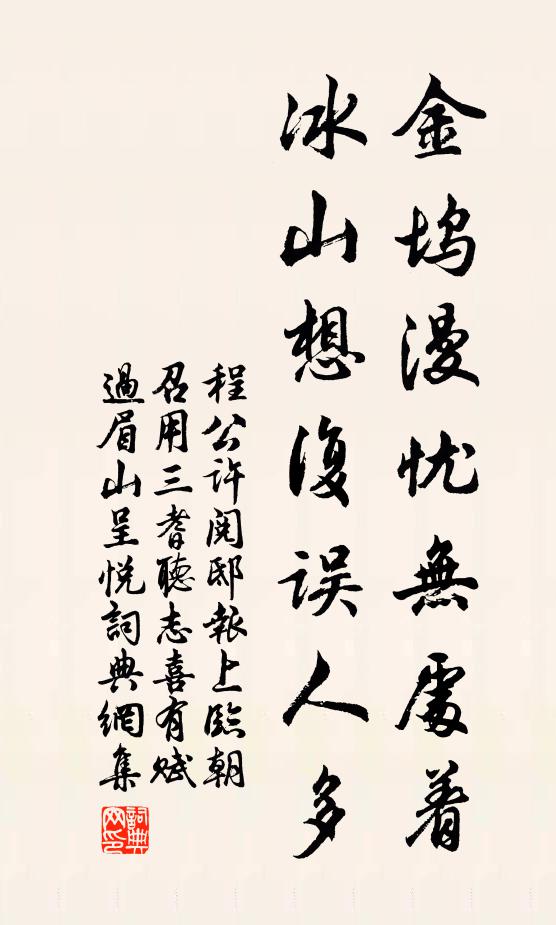 金坞漫忧無處着
冰山想復误人多
程公许阅邸報上臨朝
召用三耆聽志喜有赋
過眉山呈悦詞典網集
詞典
网印